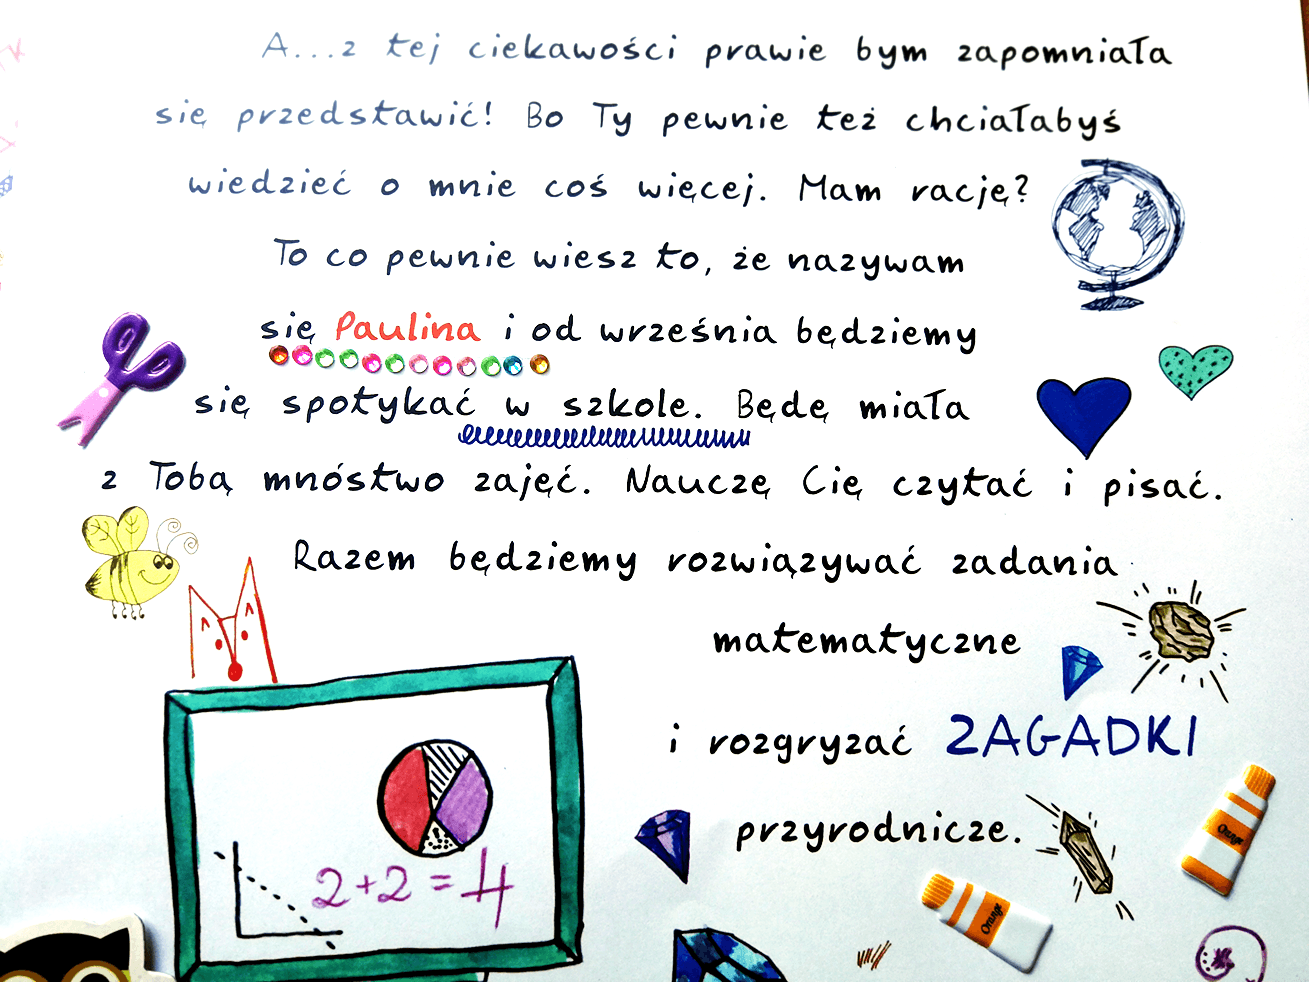 A...z tej ciekawości prawie bym zapomniała
się przedstawić! Bo Ty pewnie też chciałabyś
wiedzieć o mnie coś więcej. Mam rację?
To co pewnie wiesz to, że nazywam
się Paulina i od września będziemy
się spotykać w szkole. Będę miała
z Tobą mnóstwo zajęć. Nauczę Cię czytać i pisać.
Razem będziemy rozwiązywać zadania
matematyczne
i rozgryzać ZAGADKI
przyrodnicze.
2+2=4
Orange
Orange